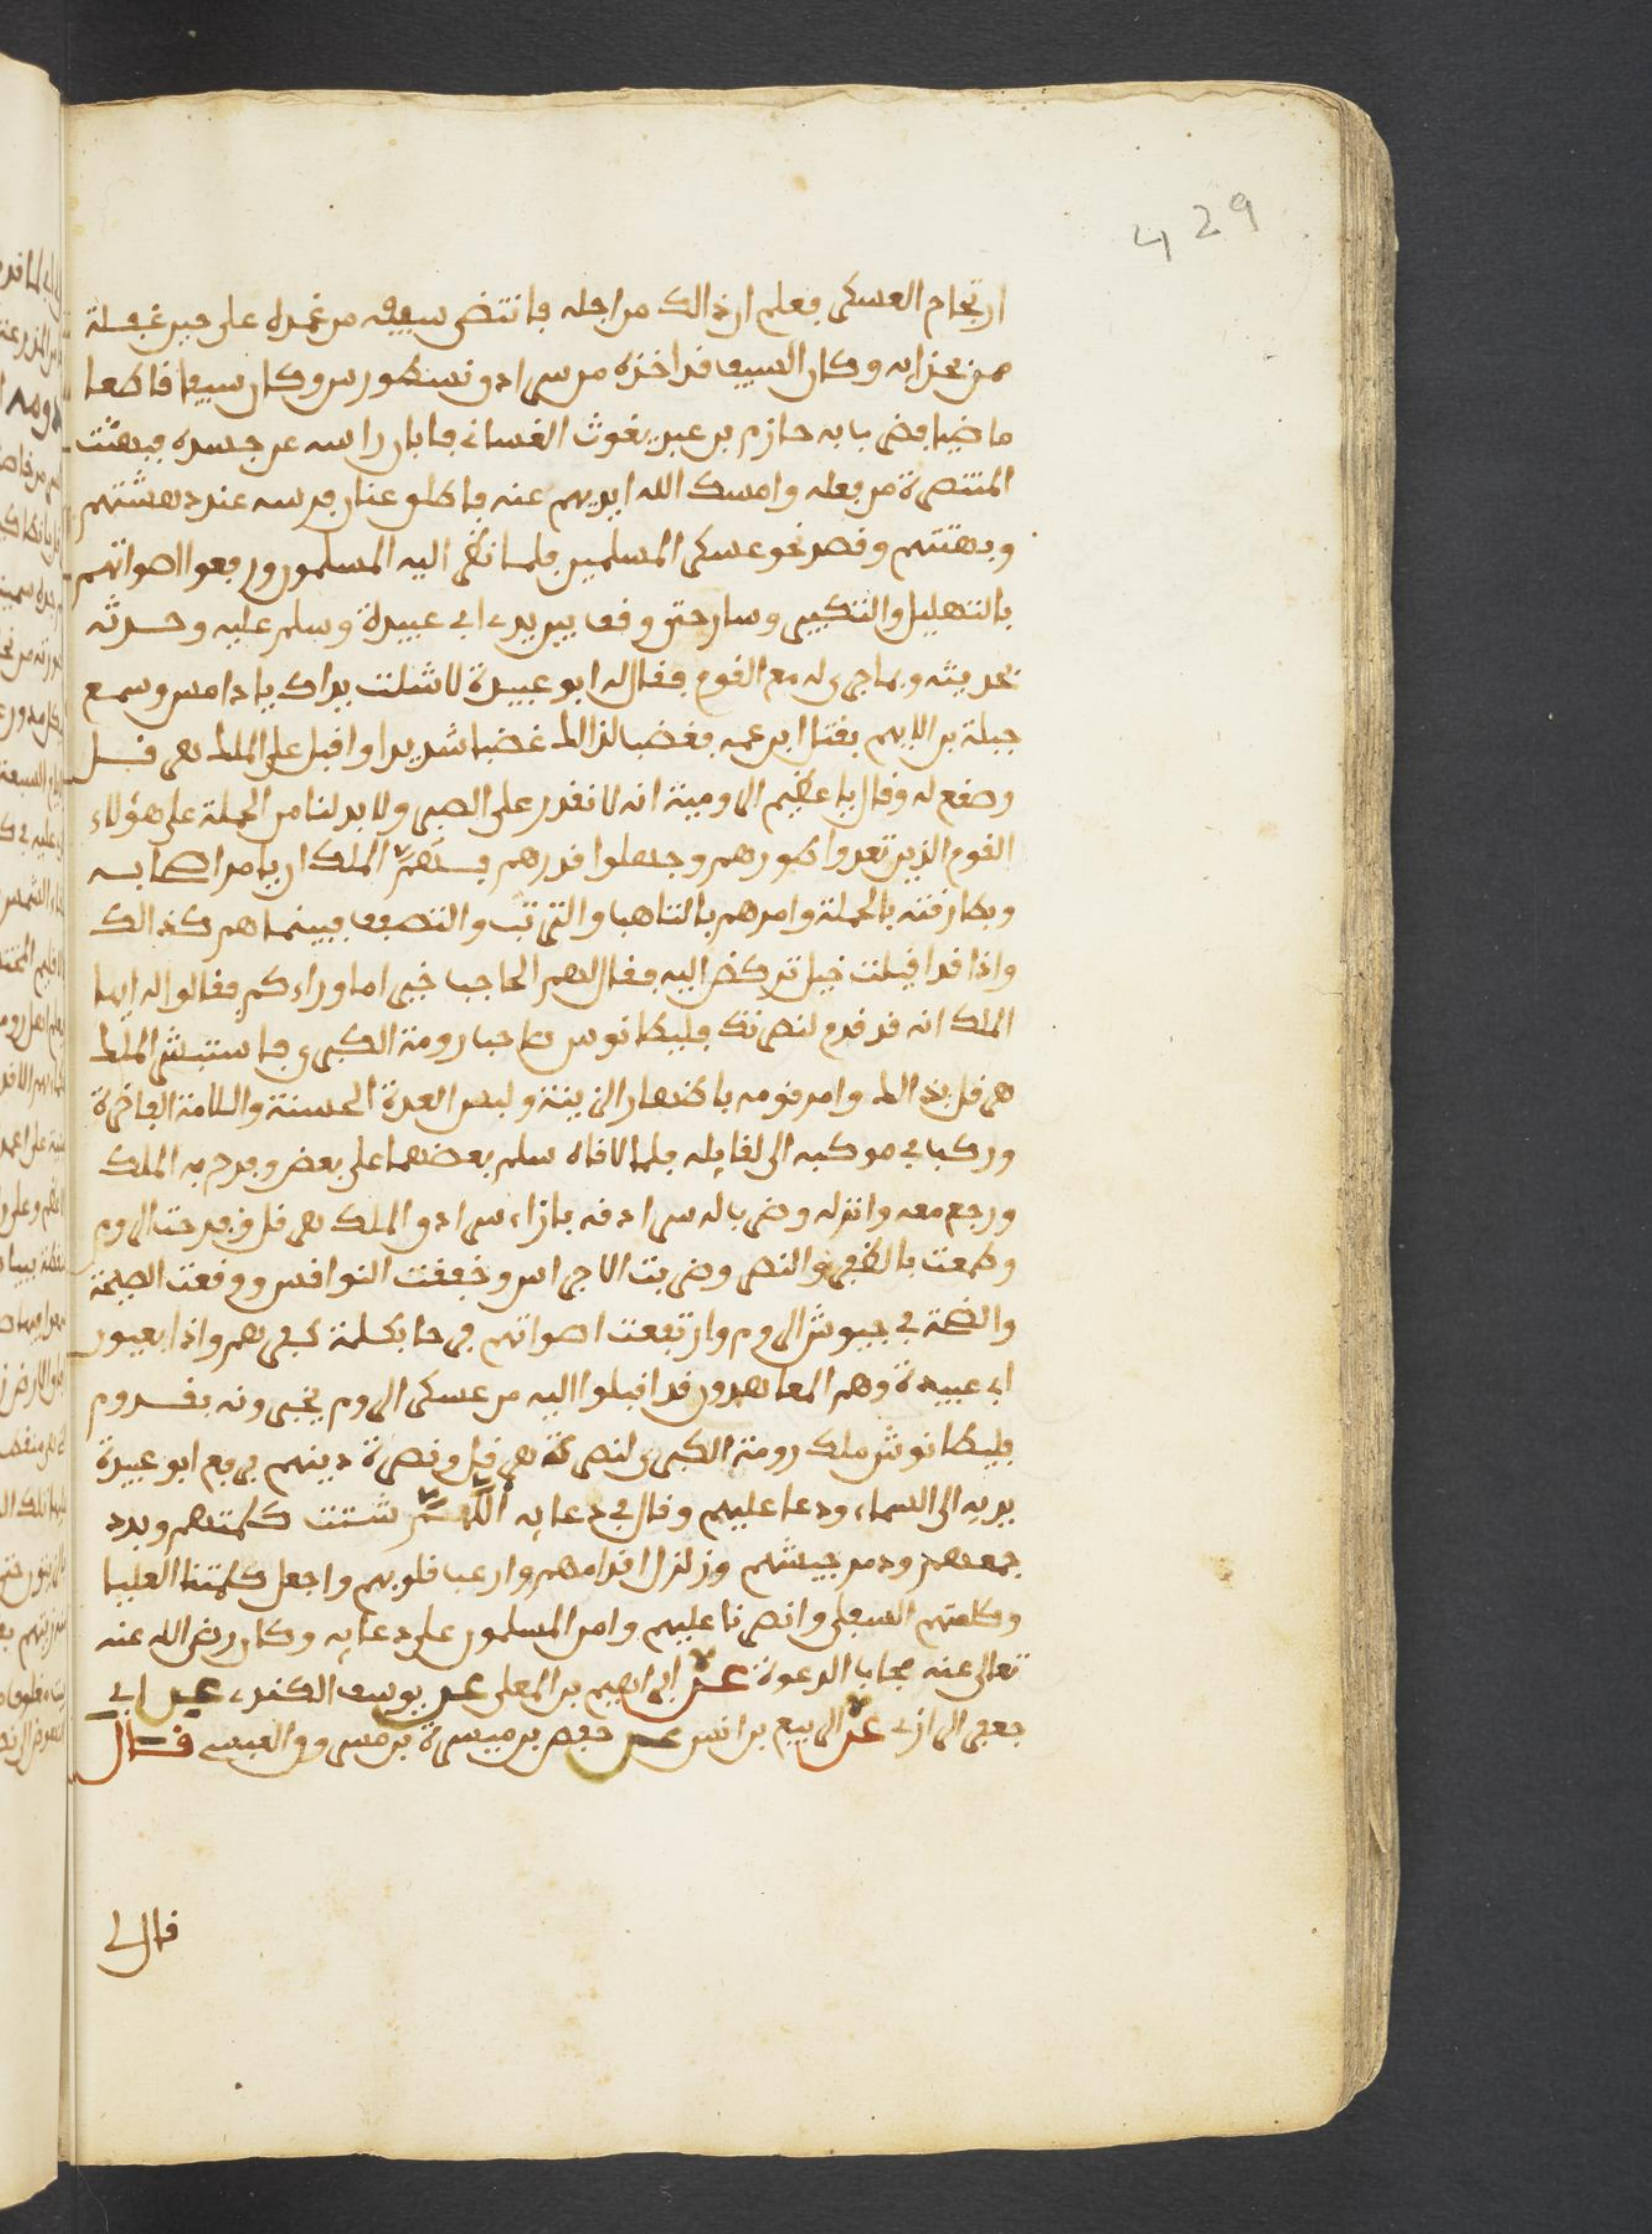 429
ارتجام العسكر فعلم ان ذالك من اجله فانتضى سيفه من غمده على حين غفلة
من حزابه وكان السيف قد اخذه من سرادق نسطورس وكان سيفا قاطعا
ماضيا فضرب به حازم بن عبد يغوث الغساني فابان راسه عن جسده فبهتت
المتنصرة من فعله وامسك الله ايديهم عنه فاطلق عنان فرسه عند دهشتهم
وبهتتهم وقصد نحو عسكر المسلمين فلما نظر اليه المسلمون ورفعوا اصواتهم
بالتهليل والتكبير وسار حتى وقف بين يدي ابي عبيدة وسلم عليه وحدثه
بحديثه وبما جرى له مع القوم فقال له ابو عبيدة لا شلت يداك يا دامس وسمع
جبلة بن الايهم بقتل ابن عمه فغضب لذالك غضبا شديدا واقبل على الملك هرقل
وصقع له وقال يا عظيم الرومية انه لا نقدر على الصبر ولا بد لنا من الحملة على هؤلاء
القوم الذين تعدوا طورهم وجهلوا قدرهم فستهم الملك ان يامر اصحابه
وبطارقته بالحملة وامرهم بالتاهب والترتب والتصفف فبينما هم كذالك
واذا قد اقبلت خيل تركض اليه فقال لهم الحاجب خبر اما وراءكم فقالوا له ايها
الملك انه قد قدم لنصرتك فليطانوس صاحب رومة الكبرى فاستبشر الملك
هرقل بذالك وامر قومه باظهار الزينة ولبس العدة الحسنة واللامة الفاخرة
وركب في موكبه الى لقايله فلما لاقاه سلم بعضهما على بعض وفرح به الملك
ورجع معه وانزله وضرب له سرادقه بازاء سرادق الملك هرقل وفرحت الروم
وطمعت بالظفر والنصر وضربت الاجراس وخفقت النواقس ووقعت الصيحة
والضجة في جيوش الروم وارتفعت اصواتهم فرحا بكلمة كفرهم واذا بعيون
ابي عبيدة وهم المعاهدون قد اقبلوا اليه من عسكر الروم يخبرونه بقدوم
فليطانوش ملك رومة الكبرى لنصرة هرقل ونصرة دينهم فرفع ابو عبيدة
يديه الى السماء ودعا عليهم وقال في دعايه اللهم شتت كلمتهم وبدد
جمعهم ودمر جيشهم وزلزل اقدامهم وارعب قلوبهم واجعل كلمتنا العليا
وكلمتهم السفلى وانصرنا عليهم وامن المسلمون على دعايه وكان رضي الله عنه
تعالى عنه مجاب الدعوة عن ابراهيم بن المعلى عن يوسف الكندي عن ابي
جعفر الرازي عن الربيع بن انس عن حفص بن ميسرة بن مسروق العبسي قال
قال لي